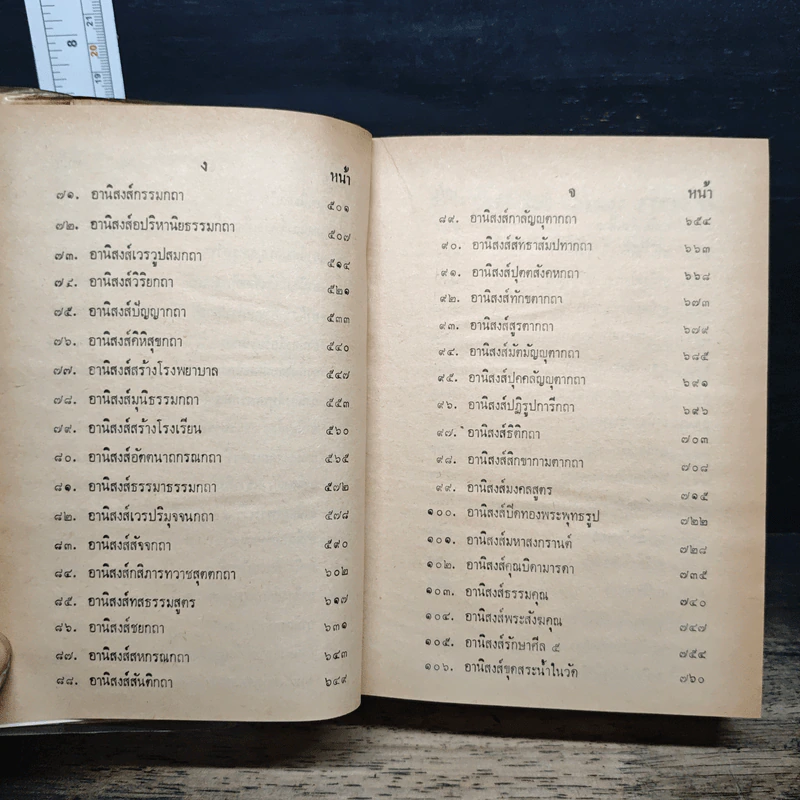 8
21
20
19
ง
หน้า
๗๑. อานิสงส์กรรมกถา ๕๐๑
๗๒. อานิสงส์อปริหานิยธรรมกถา ๕๐๗
๗๓. อานิสงส์เวรวูปสมกถา ๕๑๔
๗๔. อานิสงส์วิริยกถา ๕๒๑
๗๕. อานิสงส์ปัญญากถา ๕๓๓
๗๖. อานิสงส์คิหิสุขกถา ๕๔๐
๗๗. อานิสงส์สร้างโรงพยาบาล ๕๔๗
๗๘. อานิสงส์มุนิธรรมกถา ๕๕๓
๗๙. อานิสงส์สร้างโรงเรียน ๕๖๐
๘๐. อานิสงส์อัตตนาถกรณกถา ๕๖๕
๘๑. อานิสงส์ธรรมาธรรมกถา ๕๗๒
๘๒. อานิสงส์เวรปริมุจจนกถา ๕๗๘
๘๓. อานิสงส์สัจจกถา ๕๙๐
๘๔. อานิสงส์กสิภารทวาชสุตตกถา ๖๐๒
๘๕. อานิสงส์ทสธรรมสูตร ๖๑๗
๘๖. อานิสงส์ชยกถา ๖๓๑
๘๗. อานิสงส์สหกรณกถา ๖๔๓
๘๘. อานิสงส์สันติกถา ๖๔๙
จ
หน้า
๘๙. อานิสงส์กาลัญญุตากถา ๖๕๔
๙๐. อานิสงส์สัทธาสัมปทากถา ๖๖๓
๙๑. อานิสงส์ปุตตสังคหกถา ๖๖๘
๙๒. อานิสงส์ทักขตากถา ๖๗๓
๙๓. อานิสงส์สูรตากถา ๖๗๙
๙๔. อานิสงส์มัตตัญญุตากถา ๖๘๕
๙๕. อานิสงส์ปุคคลัญญุตากถา ๖๙๑
๙๖. อานิสงส์ปฏิรูปการีกถา ๖๙๖
๙๗. อานิสงส์ธิติกถา ๗๐๓
๙๘. อานิสงส์สิกขากามตากถา ๗๐๘
๙๙. อานิสงส์มงคลสูตร ๗๑๕
๑๐๐. อานิสงส์ปิดทองพระพุทธรูป ๗๒๒
๑๐๑. อานิสงส์มหาสงกรานต์ ๗๒๘
๑๐๒. อานิสงส์คุณบิดามารดา ๗๓๕
๑๐๓. อานิสงส์ธรรมคุณ ๗๔๐
๑๐๔. อานิสงส์พระสังฆคุณ ๗๔๗
๑๐๕. อานิสงส์รักษาศีล ๕ ๗๕๔
๑๐๖. อานิสงส์ขุดสระน้ำในวัด ๗๖๐